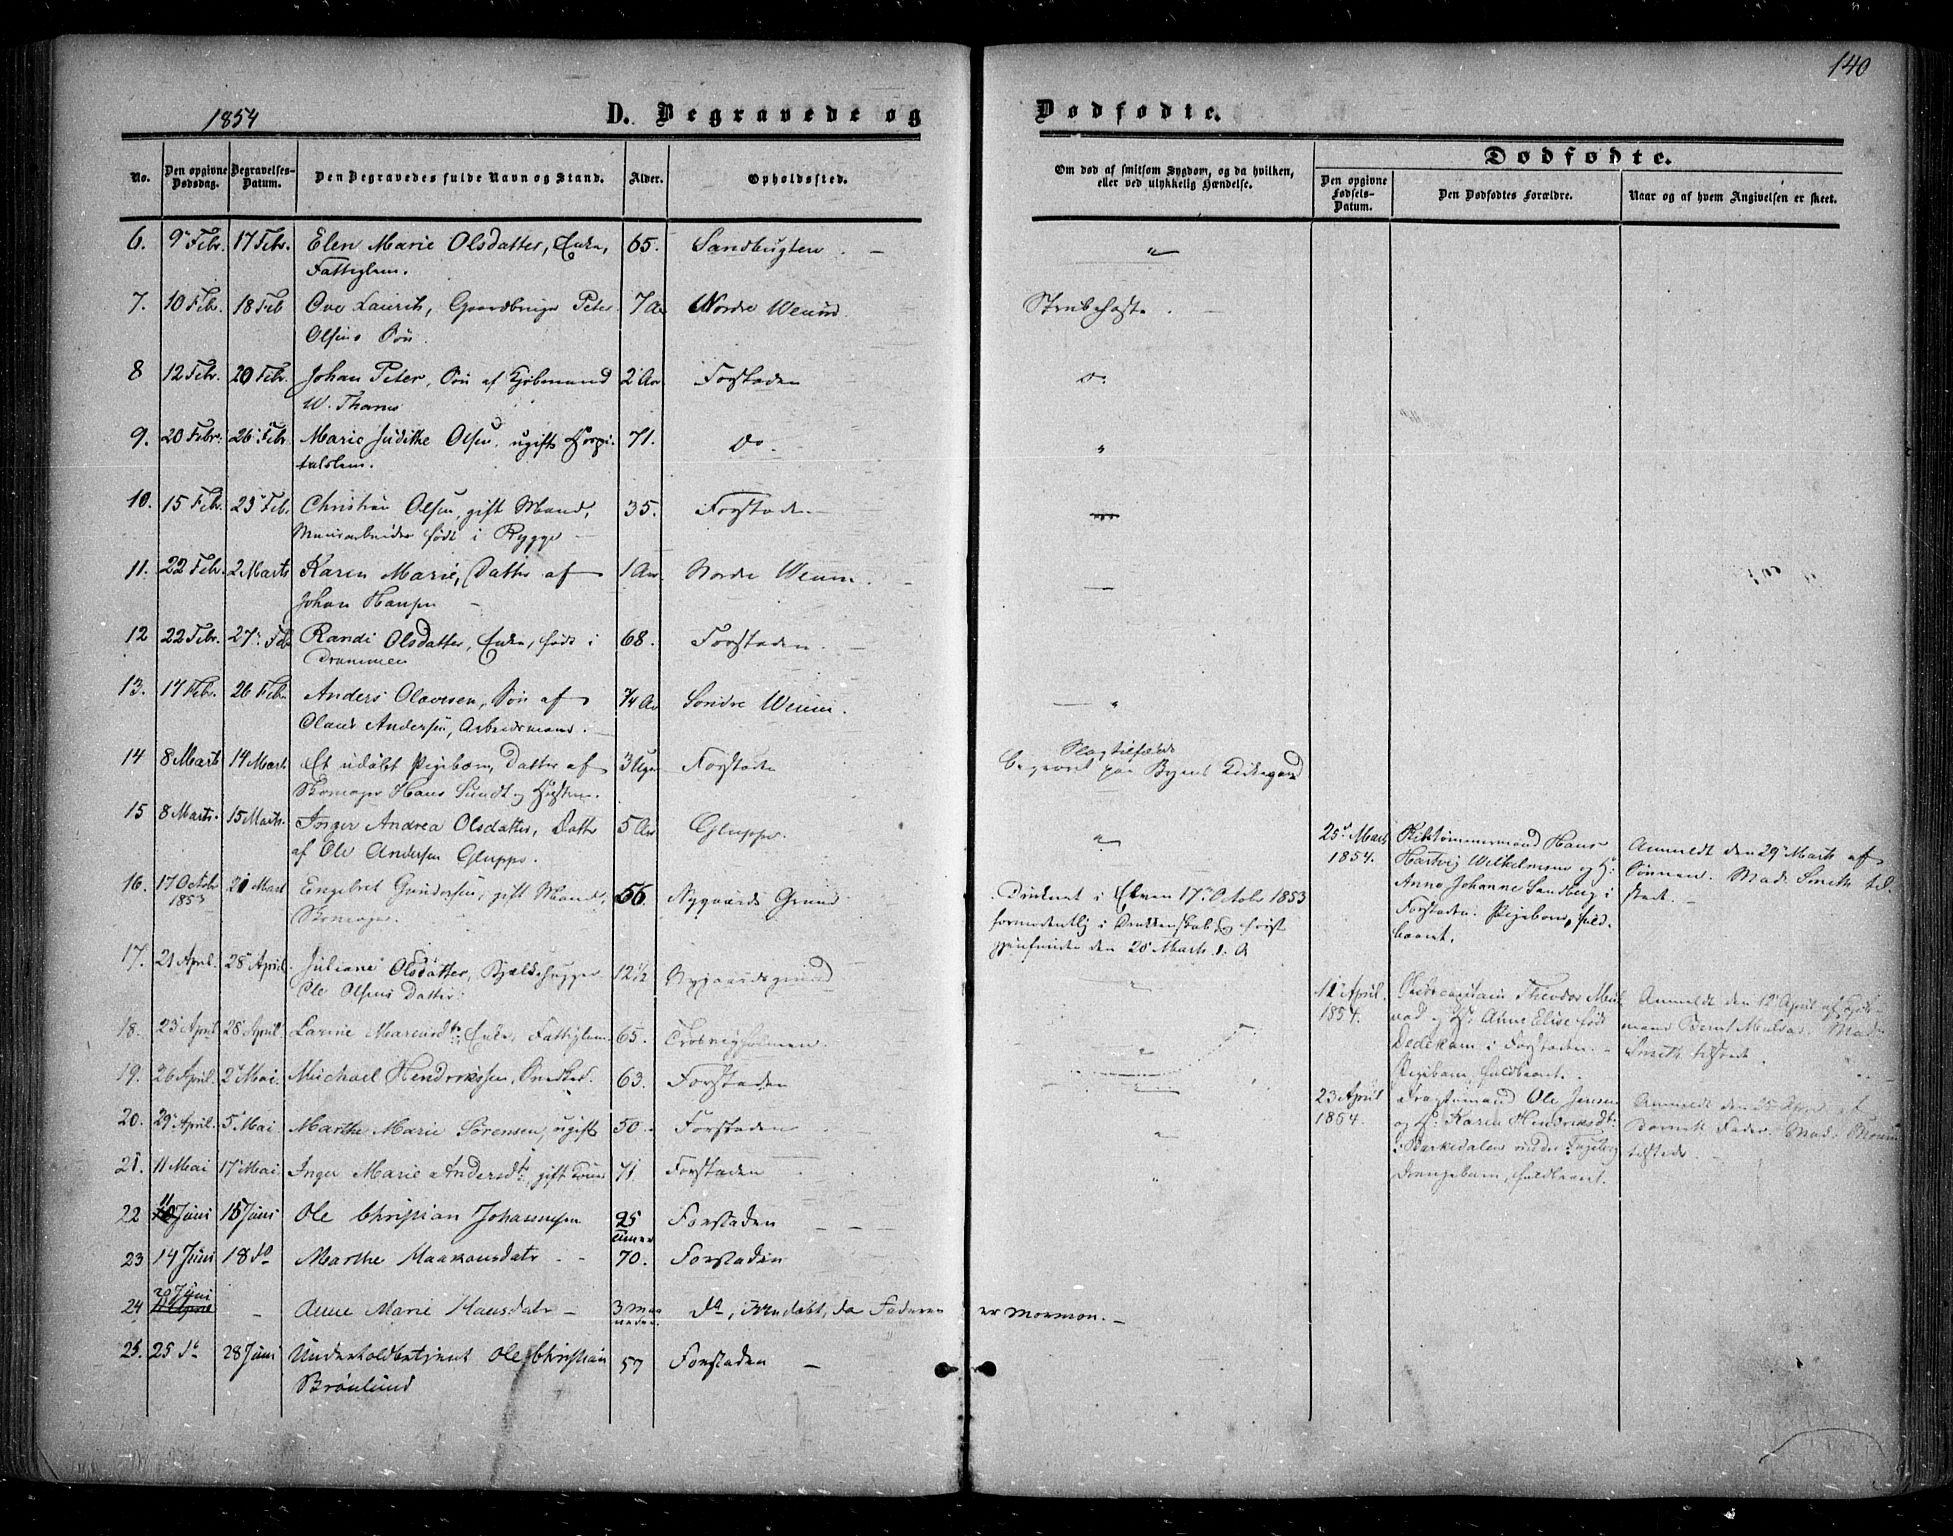 140
1854
D. Begravede og Dødfødte.
No. Den opgivne Dødsdag. Begravelses-Datum. Den Begravedes fulde Navn og Stand. Alder. Opholdssted.
Om død af smitsom Sygdom, og da hvilken, eller ved ulykkelig Hændelse.
Dødfødte.
Den opgivne Fødsels-Datum. Den Dødfødtes Forældre. Naar og af hvem Angivelsen er skeet.
6. 9 Febr. 17 Febr. Elen Marie Olsdatter, Enke, 65. Sandbugten. "
Fattiglem.
7. 10 Febr. 18 Feb Ove Laurits, Gaardbruger Peter 7 Aar Nordre Weum. Strubehoste.
Olsens Søn.
8 12 Febr. 20 Febr. Johan Peter, Søn af Kjøbmand 2 Aar Forstaden Do
W. Thanes
9. 20 Febr. 26 Febr. Marie Judithe Olsen, ugift Hospi- 71. Do. "
talslem.
10. 15 Febr. 23 Feb. Christian Olsen, gift Mand, 35. Forstaden
Muurarbeider født i Rygge
11. 22 Feb. 2 Marts Karen Marie, Datter af 1 Aar Nordre Weum.
Johan Hansen
12 22 Febr. 27 Feb Randi Olsdatter, Enke, født i 68. Forstaden.
Drammen
13. 17 Febr. 26 Feb. Anders Olavesen, Søn af 7/4 Aar Søndre Weum. "
Olaus Andersen, Arbeidsmand.
14 8 Marts 14 Mart. Et udøbt Pigebarn, Datter af 3 Uger Forstaden Slagtilfælde
begravet paa Byens Kirkegaard
Skomager Hans Lundt og Hustru.
15 8 Marts. 15 Marts. Inger Andrea Olsdatter, Datter 5 Aar Gluppe. "
af Ole Andersen Gluppe.
16. 17 Octobr 1853 21 Mart Engebret Gundersen, gift Mand, 56. Nygaards Grund
Skomager.
Druknet i Elven 17 Octobr 1853
formedentlig i Drukkenskab, og først
gjenfunden den 20 Marts d. A
17. 21 April. 28 April. Juliane Olsdatter, Bjælkehugger 12 1/2 Nygaardsgrund
Ole Olsens Datter.
18. 23 April 28 April. Larine , Enke, Fattiglem 65. .
19. 26 April. 2 Mai. Michael Hendrikssen, . 63. Forstaden
20. 29 April. 5 Mai Marthe Marie Sørensen, ugift 50. Forstaden "
21. 11 Mai 17 Mai Inger Marie Andersdt., gift Kone 71 Forstaden "
22 11 Juni 15 Juni Ole Christian Johannesen 25 Timer Forstaden
23 14 Juni 18 Do Marthe Haakonsdatr 70. Forstaden
24 20 Juni - Anne Marie Hansdatr - 3 Maaneder. Do, Uendøbt, da Faderen er Mormon.
25. 25 Do 28 Juni Underholdbetjent Ole Christian 57 Forstaden
Brønlund
25 Marts 1854. Skibtømmermand Hans
Hartvig Wilhelmsen og H.
Anne Johanne Sandberg i
Forstaden. Pigebarn, fuld-
baaret.
Anmeldt den 29 Marts af
. Mad. Smith til-
stede.
11 April. 1854. Theodor
og H. Anne Elise født
Dedekam i Forstaden.
Pigebarn, fuldbaaret.
Anmeldt den 12 April af Kjøb-
mand Bernt . Mad.
Smith tilstede.
23 April 1854. Ole Jensen
og H. Karen Hendriksdt.
Drengebarn, fuldbaaret.
Anmeldt den 25 April af
Barnets Fader. Mad.
tilstede.